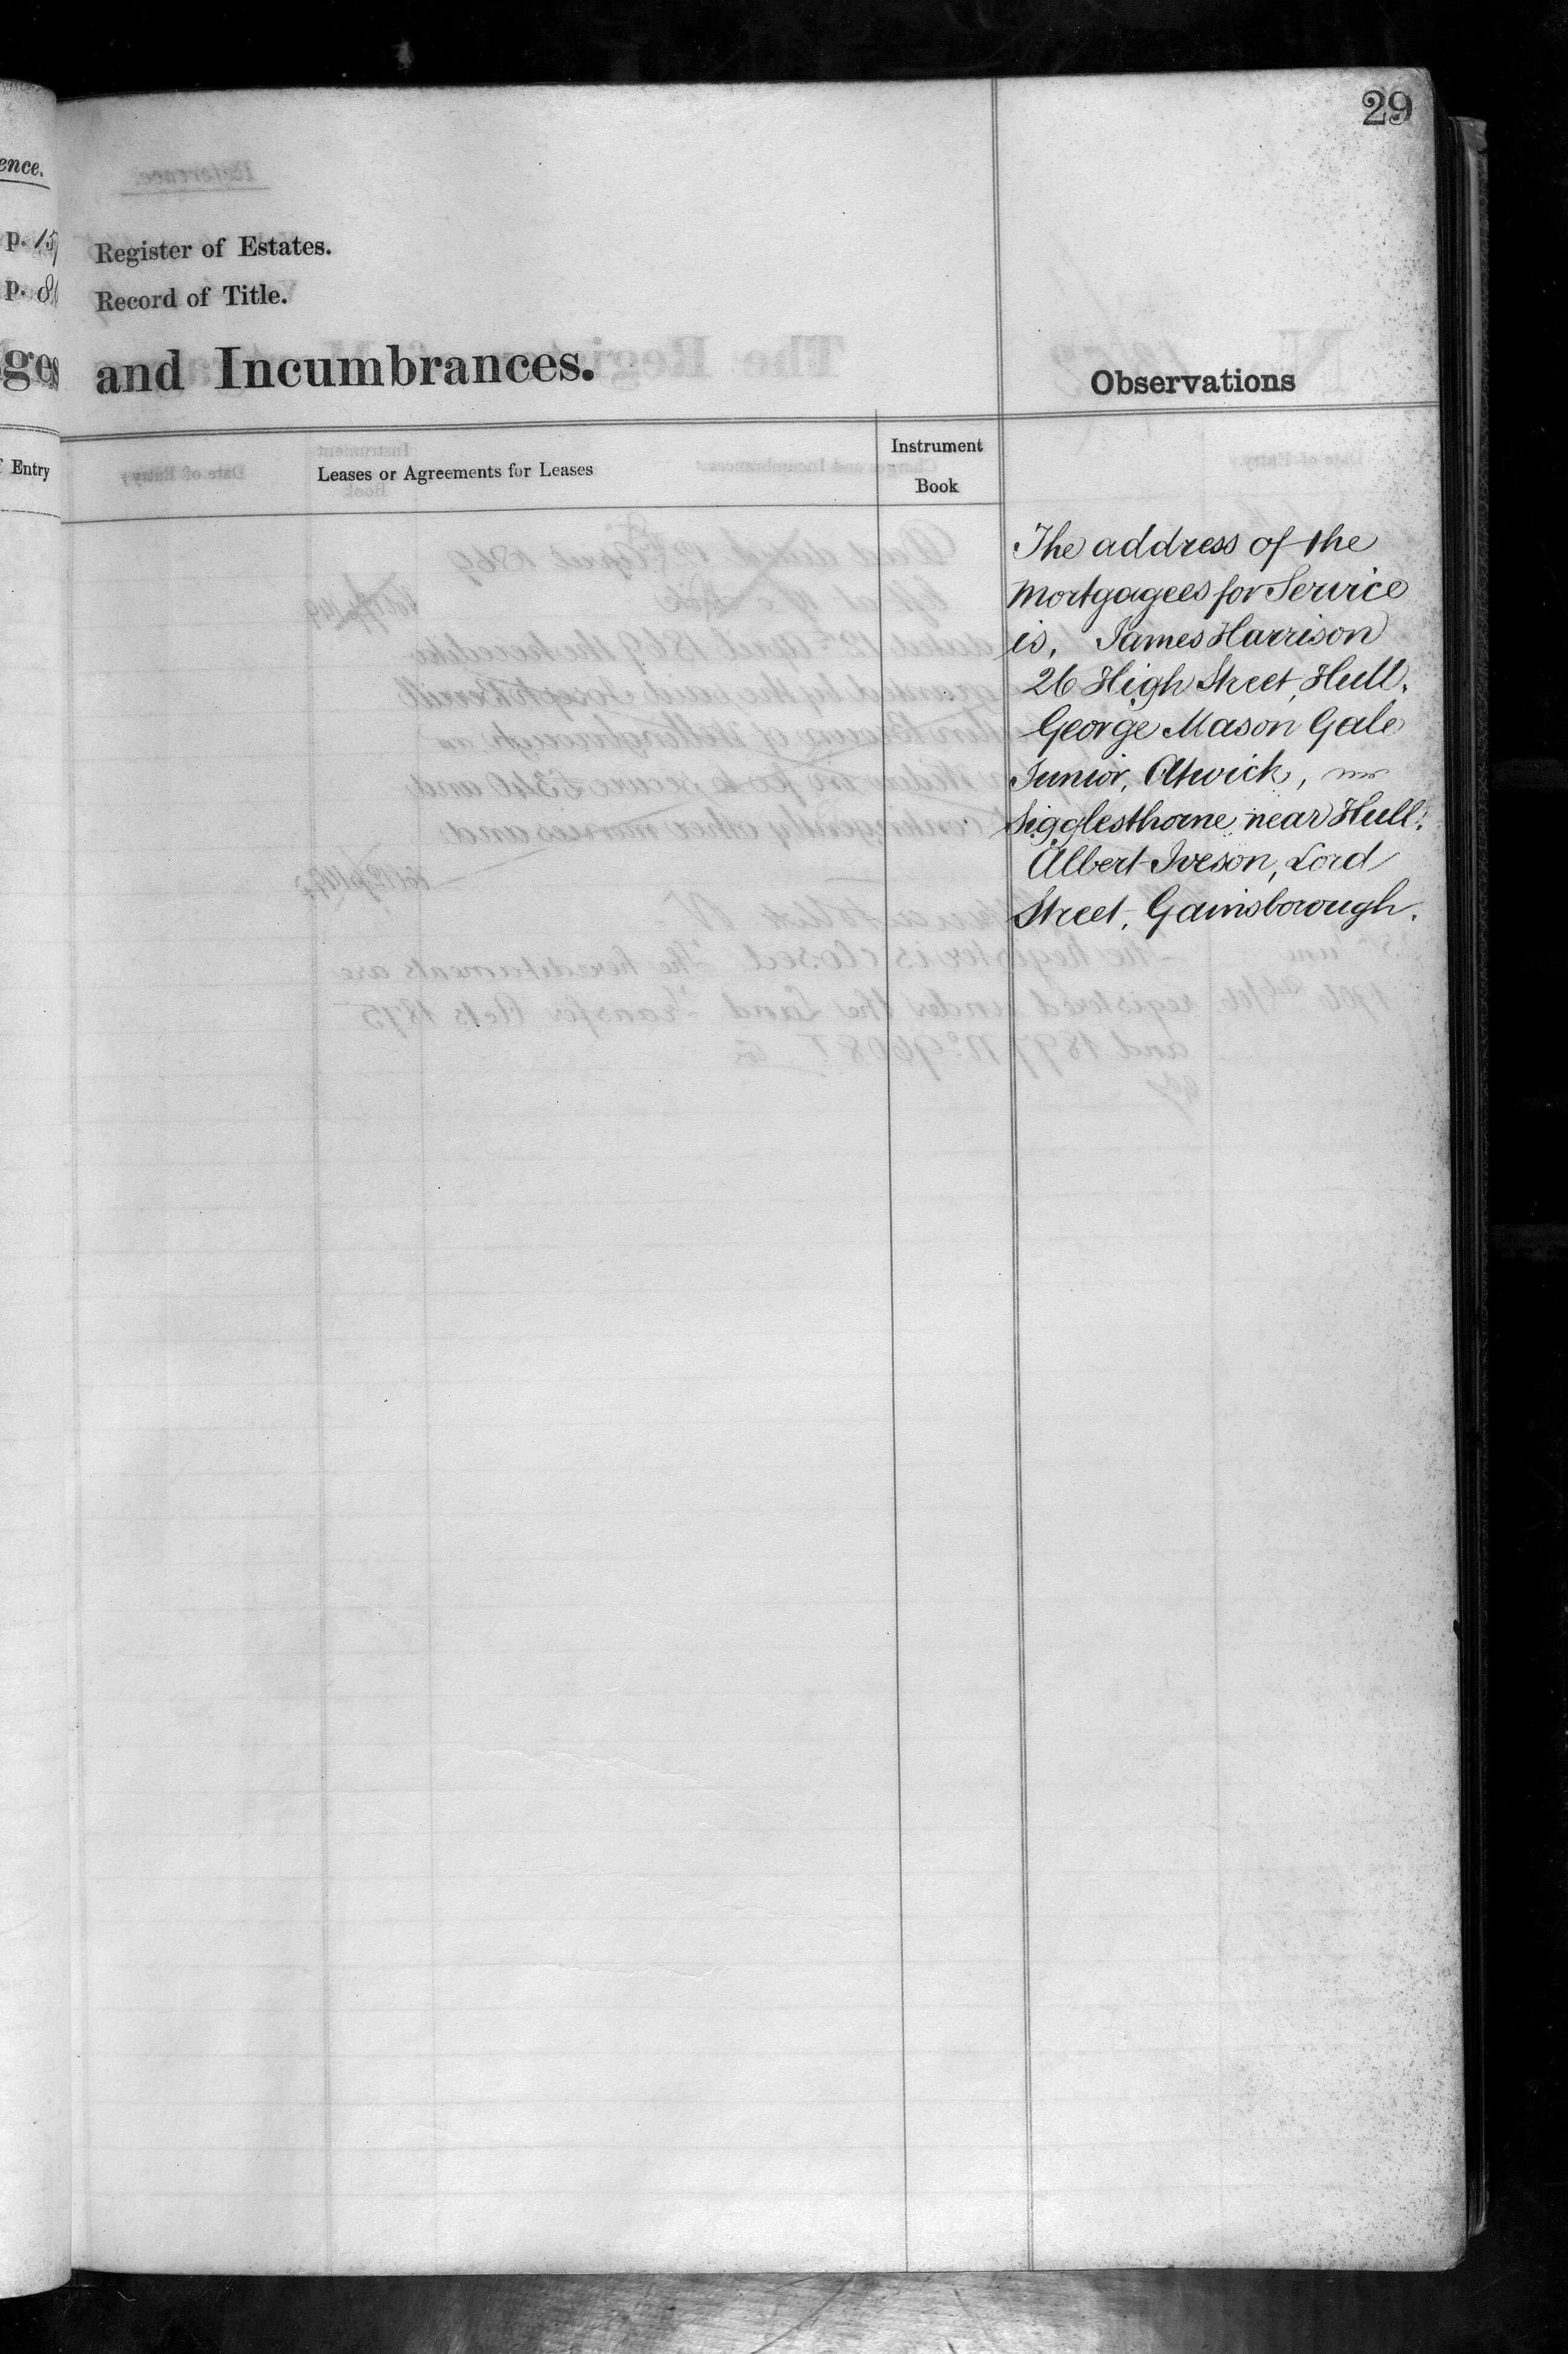 29
ence.
p. 15
Register of Estates.
p. 8
Record of Title.
ges
and Incumbrances.
Observations
Entry
Leases or Agreements for Leases
Instrument
Book
The address of the
Mortgagees for Service
is, James Harrison
26 High Street, Hull.
George Mason Gale
Junior, Atwick,
Sigglesthorne near Hull.
Albert Iveson, Lord
Street, Gainsborough.